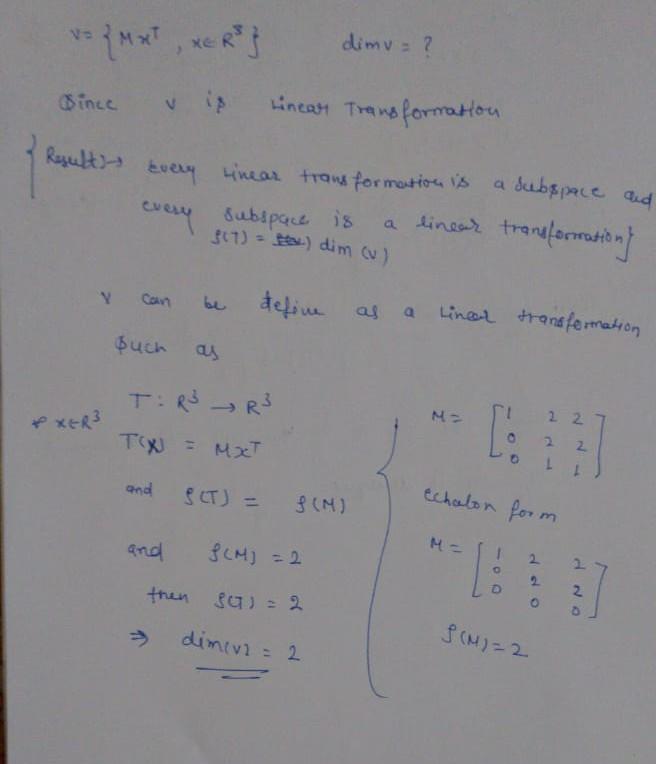 V = { Mxᵀ , x∈R³ }   dim V = ?
Since V is Linear Transformation
{ Result :→ Every Linear transformation is a subspace and
every subspace is a linear transformation }
ρ(T) = dim (V)
V can be define as a Linear transformation
Such as
T : R³ → R³
∀ x∈R³
T(X) = Mxᵀ
and ρ(T) = ρ(M)
and ρ(M) = 2
then ρ(T) = 2
⇒ dim(V) = 2
M = [ 1 2 2
0 2 2
0 1 1 ]
echalon form
M = [ 1 2 2
0 2 2
0 0 0 ]
ρ(M) = 2